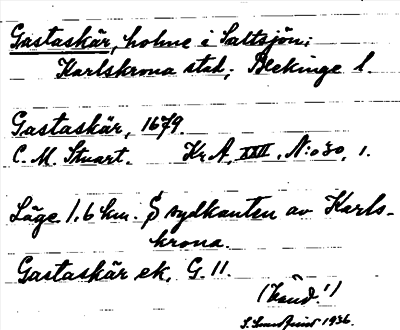 Gastaskär, holme i Saltsjön;
Karlskrona stad, Blekinge l.
Gastaskär, 1679.
C. M. Stuart. Kr. A, XXII, N:o 30, 1.
Läge 1,6 km. S sydkanten av Karls-
krona.
Gastaskär ek. G. 11.
(Känd!)
1936.